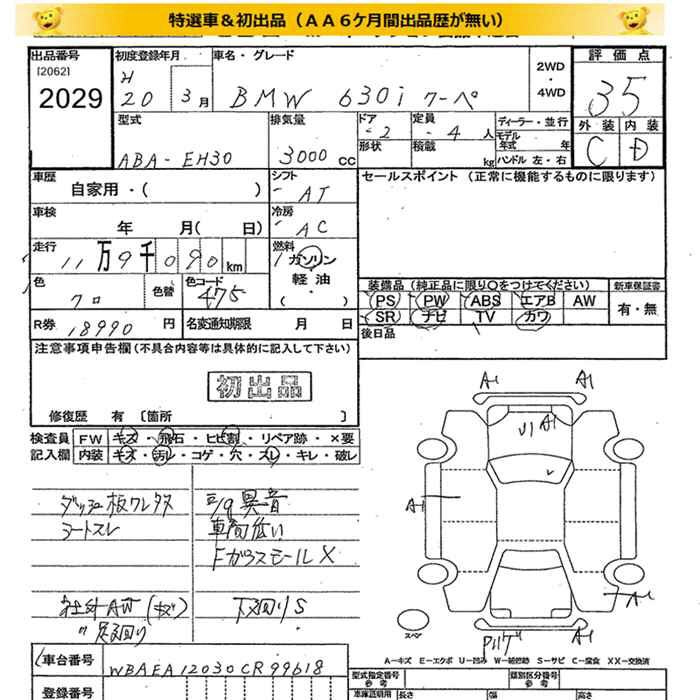 特選車＆初出品（ＡＡ６ケ月間出品歴が無い）
出品番号 初度登録年月 車名・グレード 2WD ・4WD 評価点
[2062] H
2029 20 3月 BMW 630i クーペ 35
型式 排気量 ドア 定員 ディーラー・並行 外装 内装
ABA-EH30 3000cc -2 -4人 モデル年式 年 C D
形状 積載 kg ハンドル 左・右
車歴 自家用・( ) シフト AT セールスポイント（正常に機能するものに限ります）
車検 年 月( 日) 冷房 AC
走行 11万9千090km 燃料 ガソリン 軽油 ・( )
色 クロ 色替 色コード 475 装備品（純正品に限り○をつけてください） 新車保証書
PS PW ABS エアB AW 有・無
SR ナビ TV カワ
R券 18990円 名変通知期限 月 日 後日品
注意事項申告欄（不具合内容等は具体的に記入して下さい）
初出品
修復歴 有〔箇所 〕
検査員 FW キズ・飛石・ヒビ割・リペア跡・×要
記入欄 内装 キズ・汚レ・コゲ・穴・スレ・キレ・破レ
A1 A1
U1 A1
ダッシュ板ワレタス 異音
シートスレ 車高低い
A1
FガラスモールX
社外AW(キズ) 下廻りS
〃 足廻り
A1
スペア
A1
A－キズ E－エクボ U－凹み W－補修跡 S－サビ C－腐食 XX－交換済
車台番号 WBAEA12030CR99618 型式指定番号 参考 類別区分番号 参考
登録番号 車庫証明用 長さ 幅 高さ